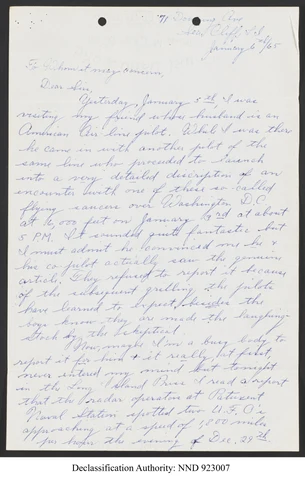 71
Sea Cliff, L.I.
January 6th/65
To Whom it may concern,
Dear Sir,
Yesterday, January 5th, I was
visiting my friend whose husband is an
American Air line pilot. While I was there
he came in with another pilot of the
same line who proceeded to launch
into a very detailed description of an
encounter with one of these so-called
flying saucers over Washington D.C.
at 6,000 feet on January 3rd at about
5 P.M. It sounded quite fantastic but
I must admit he convinced me he &
his co pilot actually saw the genuine
article. They refused to report it because
of the subsequent grilling the pilots
have learned to expect, besides the
boys know they are made the laughing
stock by the skeptical.
Now, maybe I'm a busy body to
report it for him & it really, at first,
never entered my mind but tonight
in the Long Island Press I read a report
that the radar operators at Patuxent
Naval Station spotted two U.F.O's
approaching at a speed of 4800 miles
per hour the evening of Dec. 29th.
Declassification Authority: NND 923007